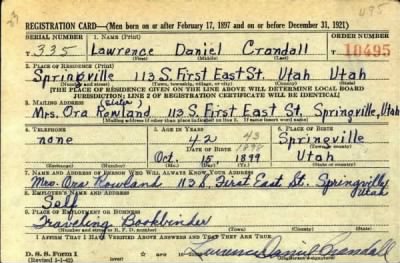 495
REGISTRATION CARD—(Men born on or after February 17, 1897 and on or before December 31, 1921)
SERIAL NUMBER 1. NAME (Print) ORDER NUMBER
T 335 Lawrence Daniel Crandall 10495
(First) (Middle) (Last)
2. PLACE OF RESIDENCE (Print)
Springville 113 S. First East St. Utah Utah
(Number and street) (Town, township, village, or city) (County) (State)
[THE PLACE OF RESIDENCE GIVEN ON THE LINE ABOVE WILL DETERMINE LOCAL BOARD
JURISDICTION; LINE 2 OF REGISTRATION CERTIFICATE WILL BE IDENTICAL]
3. MAILING ADDRESS (Sister)
Mrs. Ora Rowland 113 S. First East St. Springville, Utah
[Mailing address if other than place indicated on line 2. If same insert word same]
4. TELEPHONE 5. AGE IN YEARS 6. PLACE OF BIRTH
none 42 43 Springville
DATE OF BIRTH 1898 (Town or county)
Oct. 15 1899 Utah
(Exchange) (Number) (Mo.) (Day) (Yr.) (State or country)
7. NAME AND ADDRESS OF PERSON WHO WILL ALWAYS KNOW YOUR ADDRESS
Mrs. Ora Rowland 113 S. First East St. Springville Utah
8. EMPLOYER'S NAME AND ADDRESS
Self
9. PLACE OF EMPLOYMENT OR BUSINESS
Traveling Bookbinder
(Number and street or R. F. D. number) (Town) (County) (State)
I AFFIRM THAT I HAVE VERIFIED ABOVE ANSWERS AND THAT THEY ARE TRUE.
D. S. S. Form 1
(Revised 1-1-42) (over) Lawrence Daniel Crandall